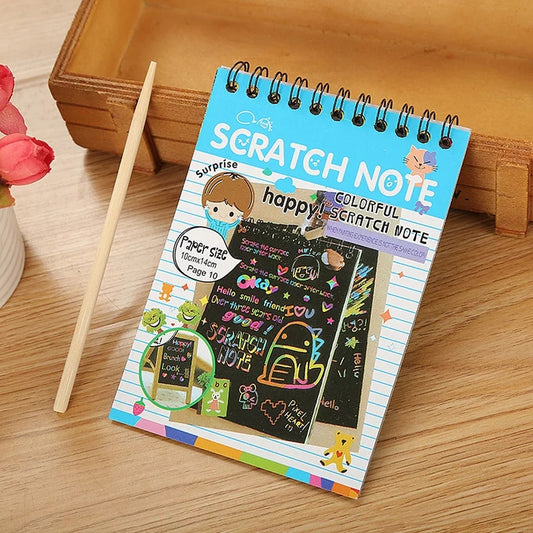 SCRATCH NOTE
Surprise
happy!
COLORFUL
SCRATCH NOTE
Paper size
10cmx14cm
Page 10
Okay
Hello smile friend I U
Over three years old
good!
SCRATCH
NOTE
Happy!
GOOD
Brunch
Look
b
Hello
PIXEL
HEART